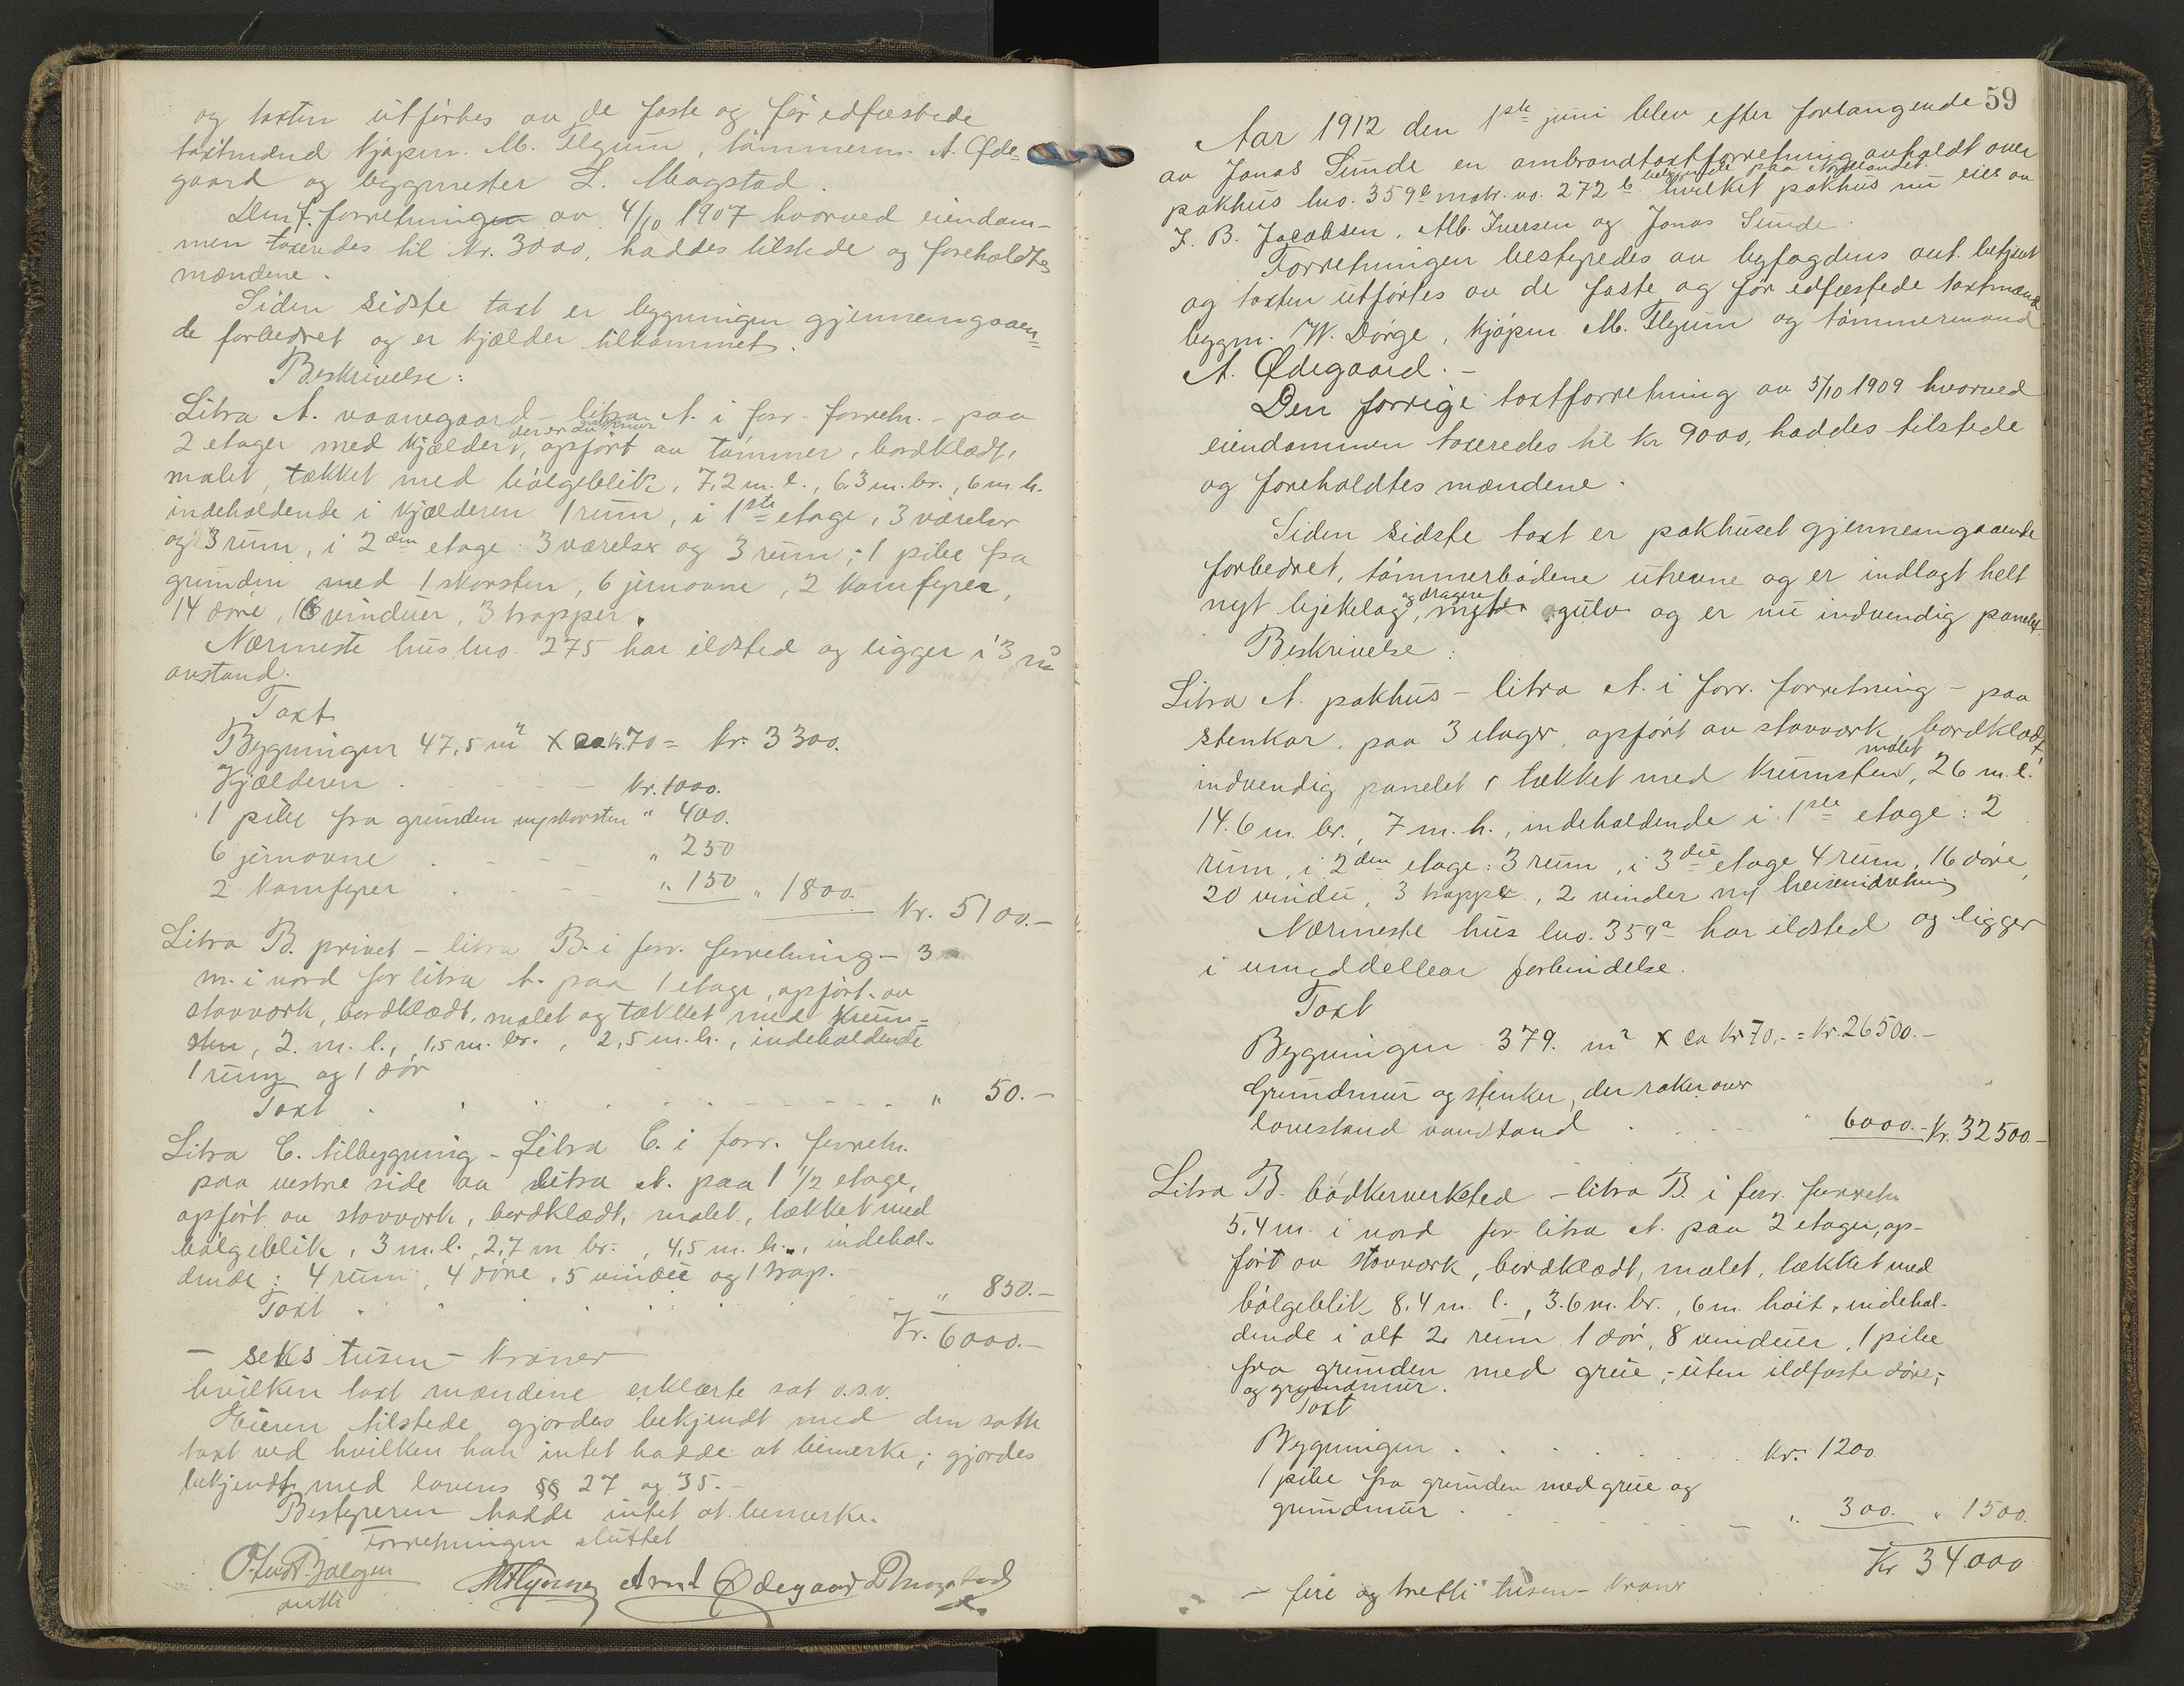 og taxten utførtes av de faste og før edfæstede
taxtmænd kjøpm. M. Flynum, tømmerm. A. Øde-
gaard og bygmester L. Magstad.
Den f. forretningen av 4/10 1907 hvorved eiendom-
men taxeredes til Kr. 3000, haddes tilstede og foreholdtes
mændene.
Siden sidste taxt er bygningen gjennemgaaen-
de forbedret og er kjælder tilkommet.
Beskrivelse:
Litra A. vaanegaard - litra A. i forr. forretn. - paa
2 etager med kjælder, opført av tømmer, bordklædt,
malet, tækket med bølgeblik, 7,2 m. l., 6.3 m. br., 6 m. h.
indeholdende i kjælderen 1 rum, i 1ste etage, 3 værelser
og 3 rum, i 2den etage 3 værelser og 3 rum; 1 pibe fra
grunden med 1 skorsten, 6 jernovne, 2 komfyrer,
14 døre, 16 vinduer, 3 trapper.
Nærmeste hus lno. 275 har ildsted og ligger i 3 m
avstand.
Taxt
Bygningen 47,5 m² x ca. kr. 70 = kr. 3300.
Kjælderen . kr. 1000.
1 pibe fra grunden m/skorsten " 400.
6 jernovne . " 250
2 komfyrer . " 150 " 1800. Kr. 5100.-
Litra B. privet - litra B. i forr. forretning - 3
m. i nord for litra A. paa 1 etage, opført av
stavverk, bordklædt, malet og tækket med krum-
sten, 2. m. l., 1,5 m. br., 2,5 m. h., indeholdende
1 rum og 1 dør
Taxt . " 50.-
Litra C. tilbygning - Litra C. i forr. forretn.
paa vestre side av litra A. paa 1 1/2 etage,
opført av stavverk, bordklædt, malet, tækket med
bølgeblik, 3 m. l. 2,7 m br., 4,5 m. h., indehol-
dende: 4 rum, 4 døre, 5 vindue og 1 trap.
Taxt . " 850.-
Kr. 6000.-
- seks tusen - kroner
hvilken taxt mændene erklærte sat o.s.v.
Eieren tilstede gjordes bekjendt med den satte
taxt ved hvilken han intet hadde at bemerke; gjordes
bekjendt med lovens §§ 27 og 35.-
Bestyreren hadde intet at bemerke.
Forretningen sluttet
MFlynum Arnt Ødegaard LMagstad
59
Aar 1912 den 1ste juni blev efter forlangende
av Jonas Sunde en ombrandtaxtforretning avholdt over
pakhus lno. 359b matr. no. 272b beliggende paa Nordlandet hvilket pakhus nu eies av
J. B. Jacobsen, Alb. Iversen og Jonas Sunde.
Forretningen bestyredes av byfogdens aut. betjent
og taxten utførtes av de faste og før edfæstede taxtmænd
bygm. W. Dørge, kjøpm. M. Flynum og tømmermand
A. Ødegaard. -
Den forrige taxtforretning av 5/10 1909 hvorved
eiendommen taxeredes til kr 9000, haddes tilstede
og foreholdtes mændene.
Siden sidste taxt er pakhuset gjennemgaaende
forbedret, tømmerbødene utrevne og er indlagt helt
nyt bjelkelag og dragere, nyt gulv og er nu indvendig panelet.
Beskrivelse:
Litra A. pakhus - litra A. i forr. forretning - paa
stenkar, paa 3 etager, opført av stavverk, bordklædt
indvendig panelet, tækket med krumsten, malet 26 m. l.
14.6 m. br., 7 m. h., indeholdende i 1ste etage: 2
rum, i 2den etage: 3 rum, i 3die etage 4 rum, 16 døre,
20 vindu, 3 trapper, 2 vinder m/ heiseindretning
Nærmeste hus lno. 359a har ildsted og ligger
i umiddelbar forbindelse.
Taxt
Bygningen 379. m² x ca kr 70.- = kr. 26500.-
Grundmur og stenkar, der raker over
lavestand vandstand . " 6000.- Kr. 32500.-
Litra B. bødkerverksted - litra B. i forr. forretn
5,4 m. i nord for litra A. paa 2 etager, op-
ført av stavverk, bordklædt, malet, tækket med
bølgeblik 8.4 m. l., 3.6 m. br., 6 m. høit, indehol-
dende i alt 2 rum 1 dør, 8 vinduer, 1 pibe
fra grunden med grue, - uten ildfaste døre;
og grundmur.
Taxt
Bygningen . kr. 1200.
1 pibe fra grunden med grue og
grundmur . " 300. " 1500.
Kr 34000
- fire og tretti tusen - kroner